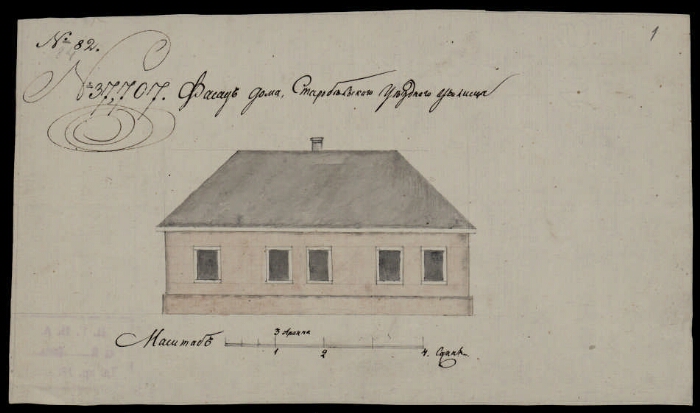 № 82.
1
№ 37,707. Фасадъ дома, Старобѣльскаго Уѣзднаго Училища
3 Аршина
Масштабъ
1 2 4. Сажн.